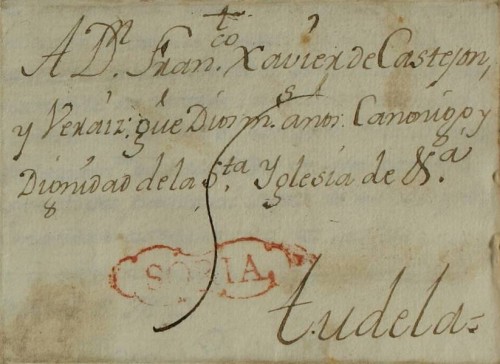 A Dn. Franco. Xavier de Castejon,
y Veráiz: que Dios ms. anos: Canonigo y
Dignidad de la Sta. Yglesia de &ga.
SORIA
tudela=